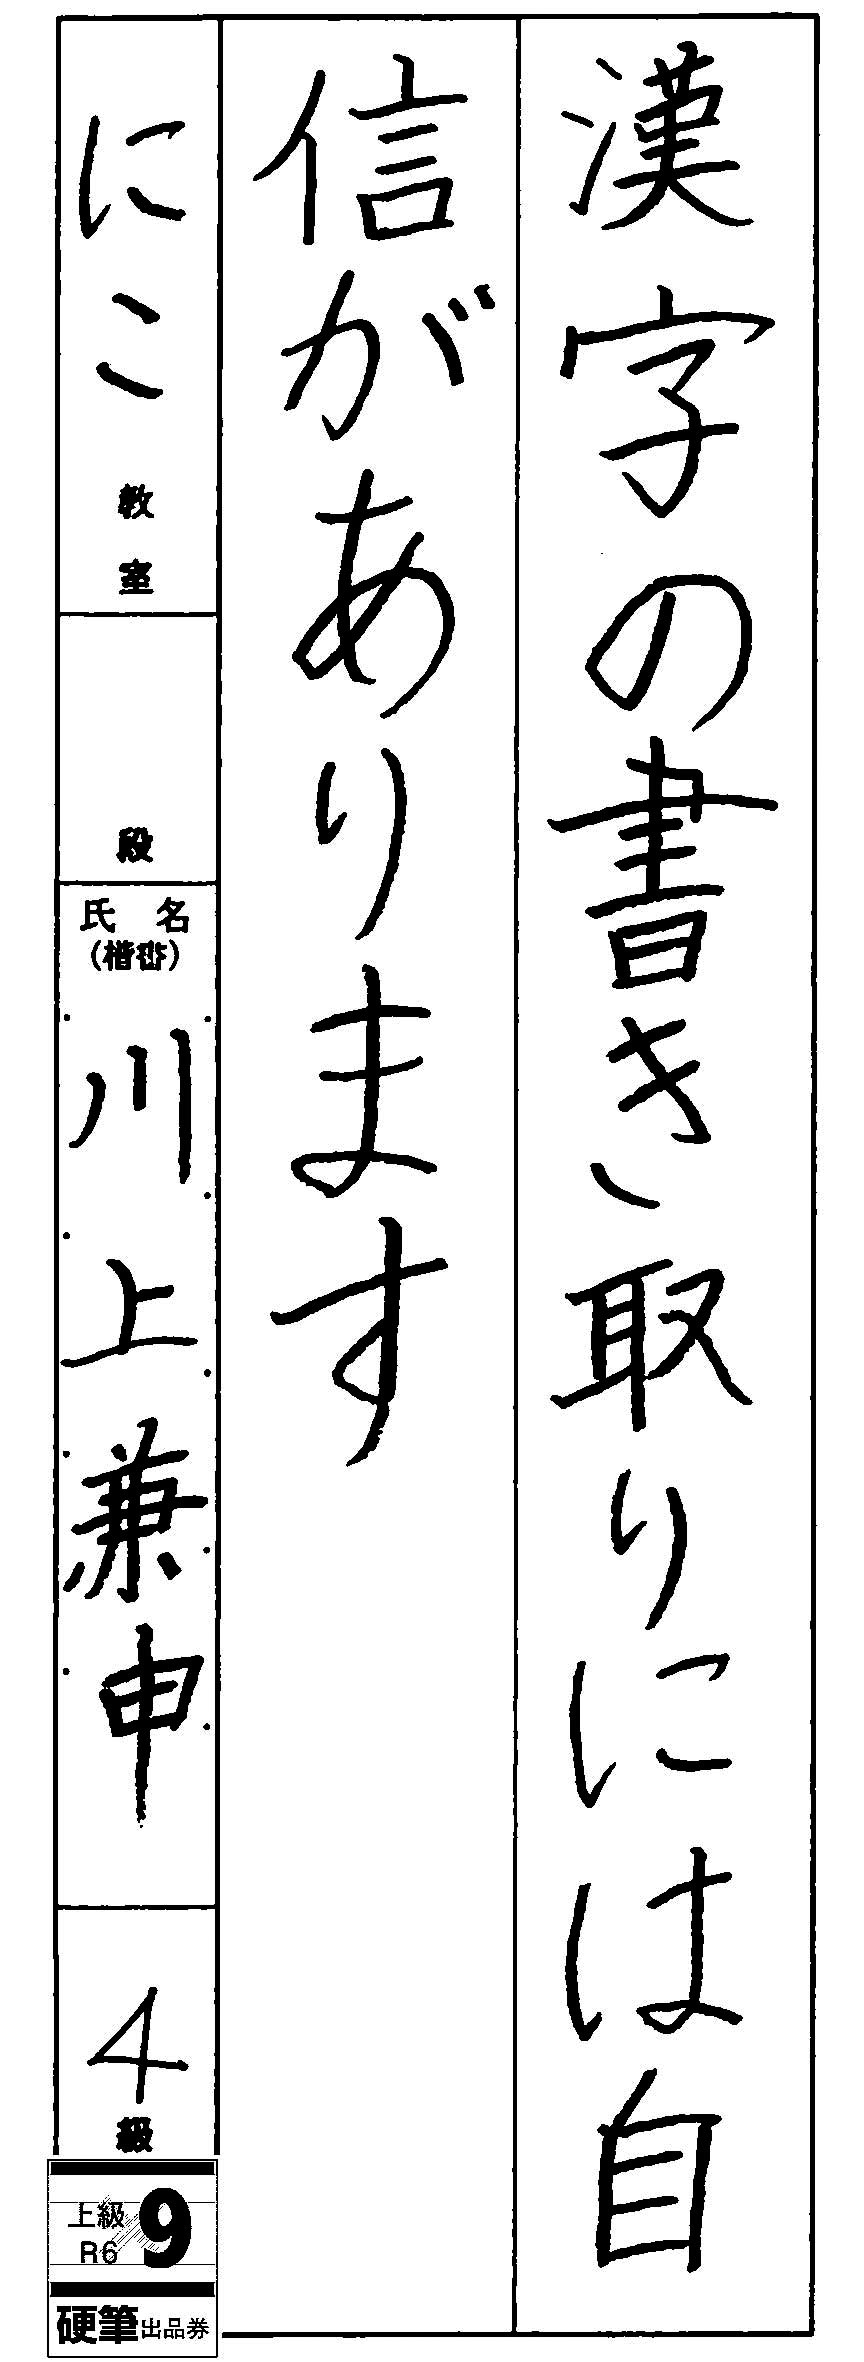 漢字の書き取りには自
信があります
にこ教室
段
氏名
(楷書)
川上兼申
4級
上級
R6
9
硬筆出品券